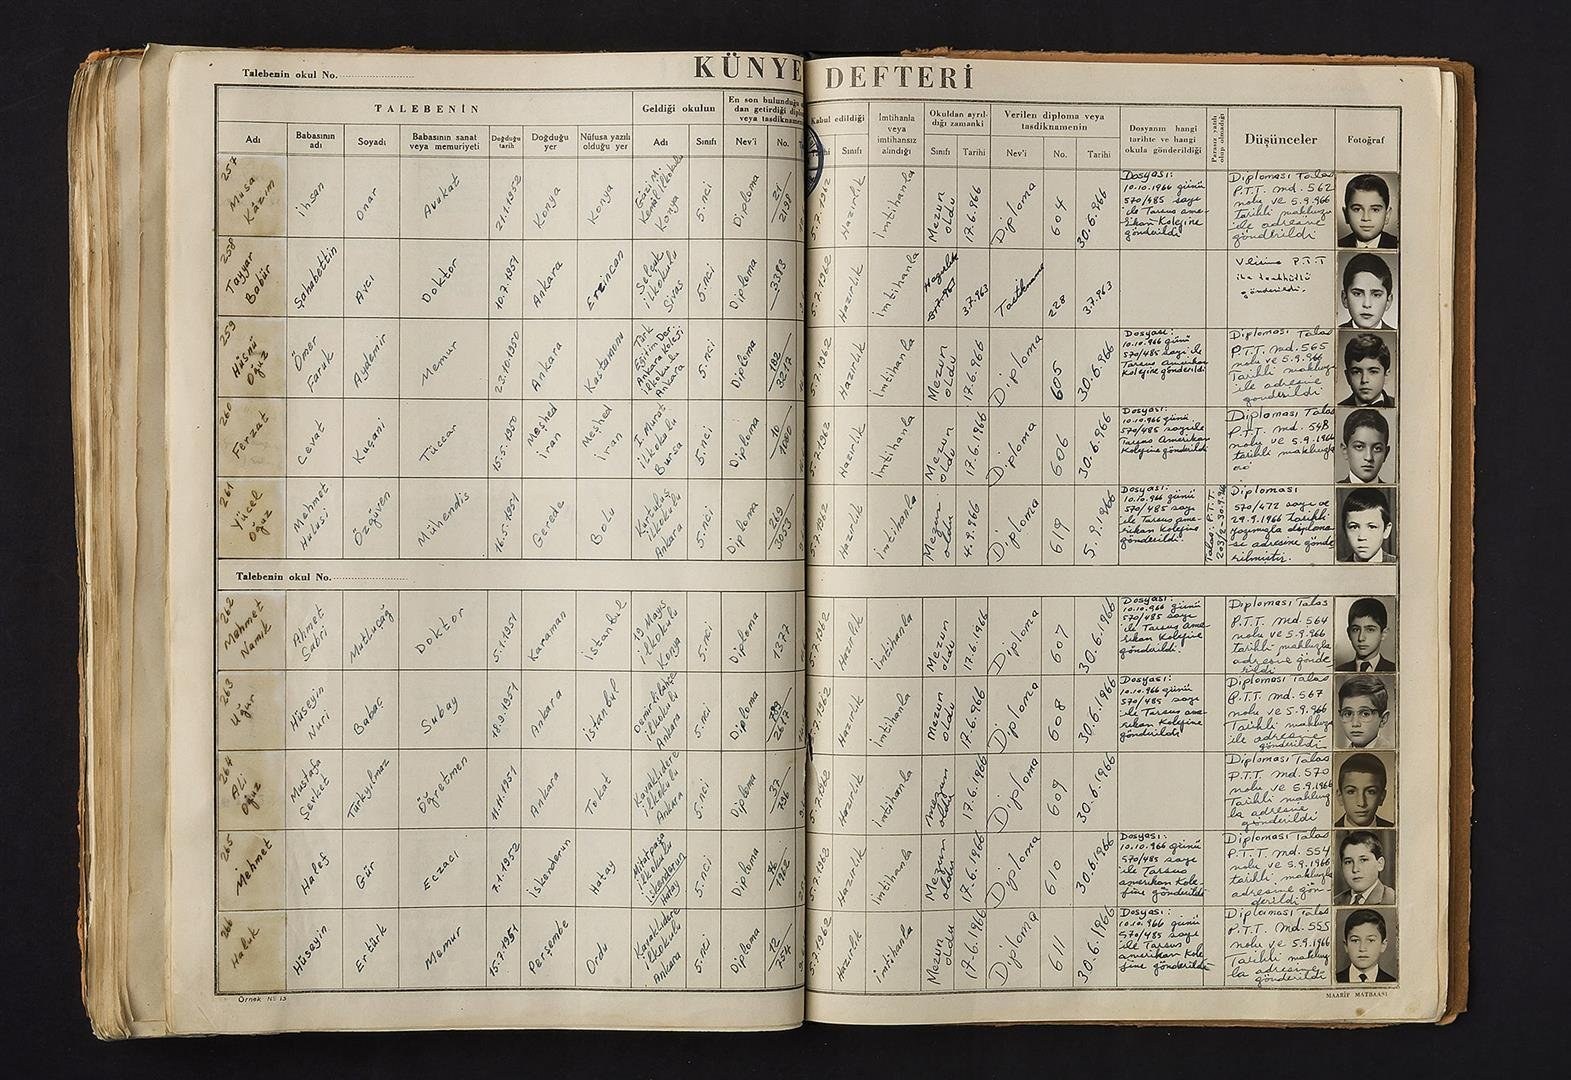 KÜNYE DEFTERİ
Talebenin okul No.
TALEBENİN
Geldiği okulun
En son bulunduğu
dan getirdiği
veya tasdiknamenin
Kabul edildiği
İmtihanla
veya
imtihansız
alındığı
Okuldan ayrıl-
dığı zamanki
Verilen diploma veya
tasdiknamenin
Dosyanın hangi
tarihte ve hangi
okula gönderildiği
Parasız yatılı
olup olmadığı
Düşünceler
Fotoğraf
Adı
Babasının
adı
Soyadı
Babasının sanat
veya memuriyeti
Doğduğu
tarih
Doğduğu
yer
Nüfusa yazılı
olduğu yer
Adı
Sınıfı
Nev'i
No.
Sınıfı
Sınıfı
Tarihi
Nev'i
No.
Tarihi
257
Musa
Kâzım
İhsan
Onar
Avukat
21.1.1952
Konya
Konya
Konya
5.nci
Diploma
21
2198
5.7.1962
Hazırlık
İmtihanla
Mezun
oldu
17.6.966
Diploma
604
30.6.966
Dosyası:
10.10.1966 günü
570/485 sayı
ile Tarsus ame-
rikan Kolejine
gönderildi
Diploması Talas
P.T.T. md. 562
nolu ve 5.9.966
tarihli makbuzu
ile adresine
gönderildi
258
Tayyar
Babür
Şahabettin
Avcı
Doktor
10.7.1951
Ankara
Erzincan
Selçuk
ilkokulu
Sivas
5.nci
Diploma
3383
5.7.1962
Hazırlık
İmtihanla
Hazırlık
3.7.963
3.7.963
Tasdikname
228
3.7.963
Velisine P.T.T
ile taahhütlü
gönderildi.
259
Hüsnü
Oğuz
Ömer
Faruk
Aydemir
Memur
23.10.1950
Ankara
Kastamonu
Türk
Eğitim Der.
Ankara Koleji
ilkokulu
Ankara
5.nci
Diploma
182
3217
5.7.1962
Hazırlık
İmtihanla
Mezun
oldu
17.6.966
Diploma
605
30.6.966
Dosyası:
10.10.966 günü
570/485 sayı ile
Tarsus amerikan
Kolejine gönderildi
Diploması Talas
P.T.T. md. 565
nolu ve 5.9.966
Tarihli makbuzu
ile adresine
gönderildi
260
Ferzat
Cevat
Kuçani
Tüccar
15.5.1950
Meşhed
İran
Meşhed
İran
I. Murat
ilkokulu
Bursa
5.nci
Diploma
10
1280
5.7.1962
Hazırlık
İmtihanla
Mezun
oldu
17.6.1966
Diploma
606
30.6.966
Dosyası:
10.10.966 günü
570/485 sayı ile
Tarsus Amerikan
Kolejine gönderildi
Diploması Talas
P.T.T. md. 548
nolu ve 5.9.1966
tarihli makbuzla
261
Yücel
Oğuz
Mehmet
Hulusi
Özgüven
Mühendis
16.5.1951
Gerede
Bolu
Kurtuluş
ilkokulu
Ankara
5.nci
Diploma
269
3053
5.7.1962
Hazırlık
İmtihanla
Mezun
oldu
4.9.966
Diploma
619
5.9.1966
Dosyası:
10.10.966 günü
570/485 sayı
ile Tarsus ame-
rikan Kolejine
gönderildi.
Talas: P.T.T.
Diploması
570/472 sayı ve
29.9.1966 tarihli
yazımızla diploma-
sı adresine gönde
rilmiştir.
Talebenin okul No.
262
Mehmet
Namık
Ahmet
Sabri
Mutluçağ
Doktor
5.1.1951
Karaman
İstanbul
19 Mayıs
ilkokulu
Konya
5.nci
Diploma
1377
5.7.1962
Hazırlık
İmtihanla
Mezun
oldu
17.6.1966
Diploma
607
30.6.1966
Dosyası:
10.10.966 günü
570/485 sayı
ile Tarsus Ame
rikan Kolejine
gönderildi.
Diploması Talas
P.T.T. md. 564
nolu ve 5.9.966
tarihli makbuzla
adresine gönde
rildi
263
Uğur
Hüseyin
Nuri
Babaç
Subay
18.9.1951
Ankara
İstanbul
Demirlibahçe
ilkokulu
Ankara
5.nci
Diploma
2617
5.7.1962
Hazırlık
İmtihanla
Mezun
oldu
17.6.966
Diploma
608
30.6.1966
Dosyası:
10.10.966 günü
570/485 sayı
ile Tarsus ame
rikan Kolejine
gönderildi
Diploması Talas
P.T.T. md. 567
nolu ve 5.9.966
Tarihli makbuzu
ile adresine
gönderildi
264
Ali
Oğuz
Mustafa
Şevket
Türkyılmaz
Öğretmen
11.11.1951
Ankara
Tokat
Kavaklıdere
ilkokulu
Ankara
5.nci
Diploma
37
796
5.7.1962
Hazırlık
İmtihanla
mezun
oldu
17.6.1966
Diploma
609
30.6.1966
Diploması Talas
P.T.T. md. 570
nolu ve 5.9.1966
Tarihli makbuz
la adresine
gönderildi
265
Mehmet
Halef
Gür
Eczacı
7.1.1952
İskenderun
Hatay
Mitatpaşa
ilkokulu
İskenderun
Hatay
5.nci
Diploma
1962
5.7.1962
Hazırlık
İmtihanla
Mezun
oldu
17.6.1966
Diploma
610
30.6.1966
Dosyası:
10.10.966 günü
570/485 sayı
ile Tarsus
amerikan Kole-
jine gönderildi
Diploması Talas
P.T.T. md. 554
nolu ve 5.9.1966
tarihli makbuzla
adresine gön
derildi
266
Haluk
Hüsayin
Ertürk
Memur
15.7.1951
Perşembe
Ordu
Kavaklıdere
ilkokulu
Ankara
5.nci
Diploma
12
754
5.7.1962
Hazırlık
İmtihanla
Mezun
oldu
17.6.1966
Diploma
611
30.6.1966
Dosyası:
10.10.966 günü
570/485 sayı
ile Tarsus
amerikan Kole
jine gönderildi
Diploması Talas
P.T.T. md. 555
nolu ve 5.9.1966
Tarihli makbuz
la adresine
gönderildi
Örnek № 13
MAARİF MATBAASI